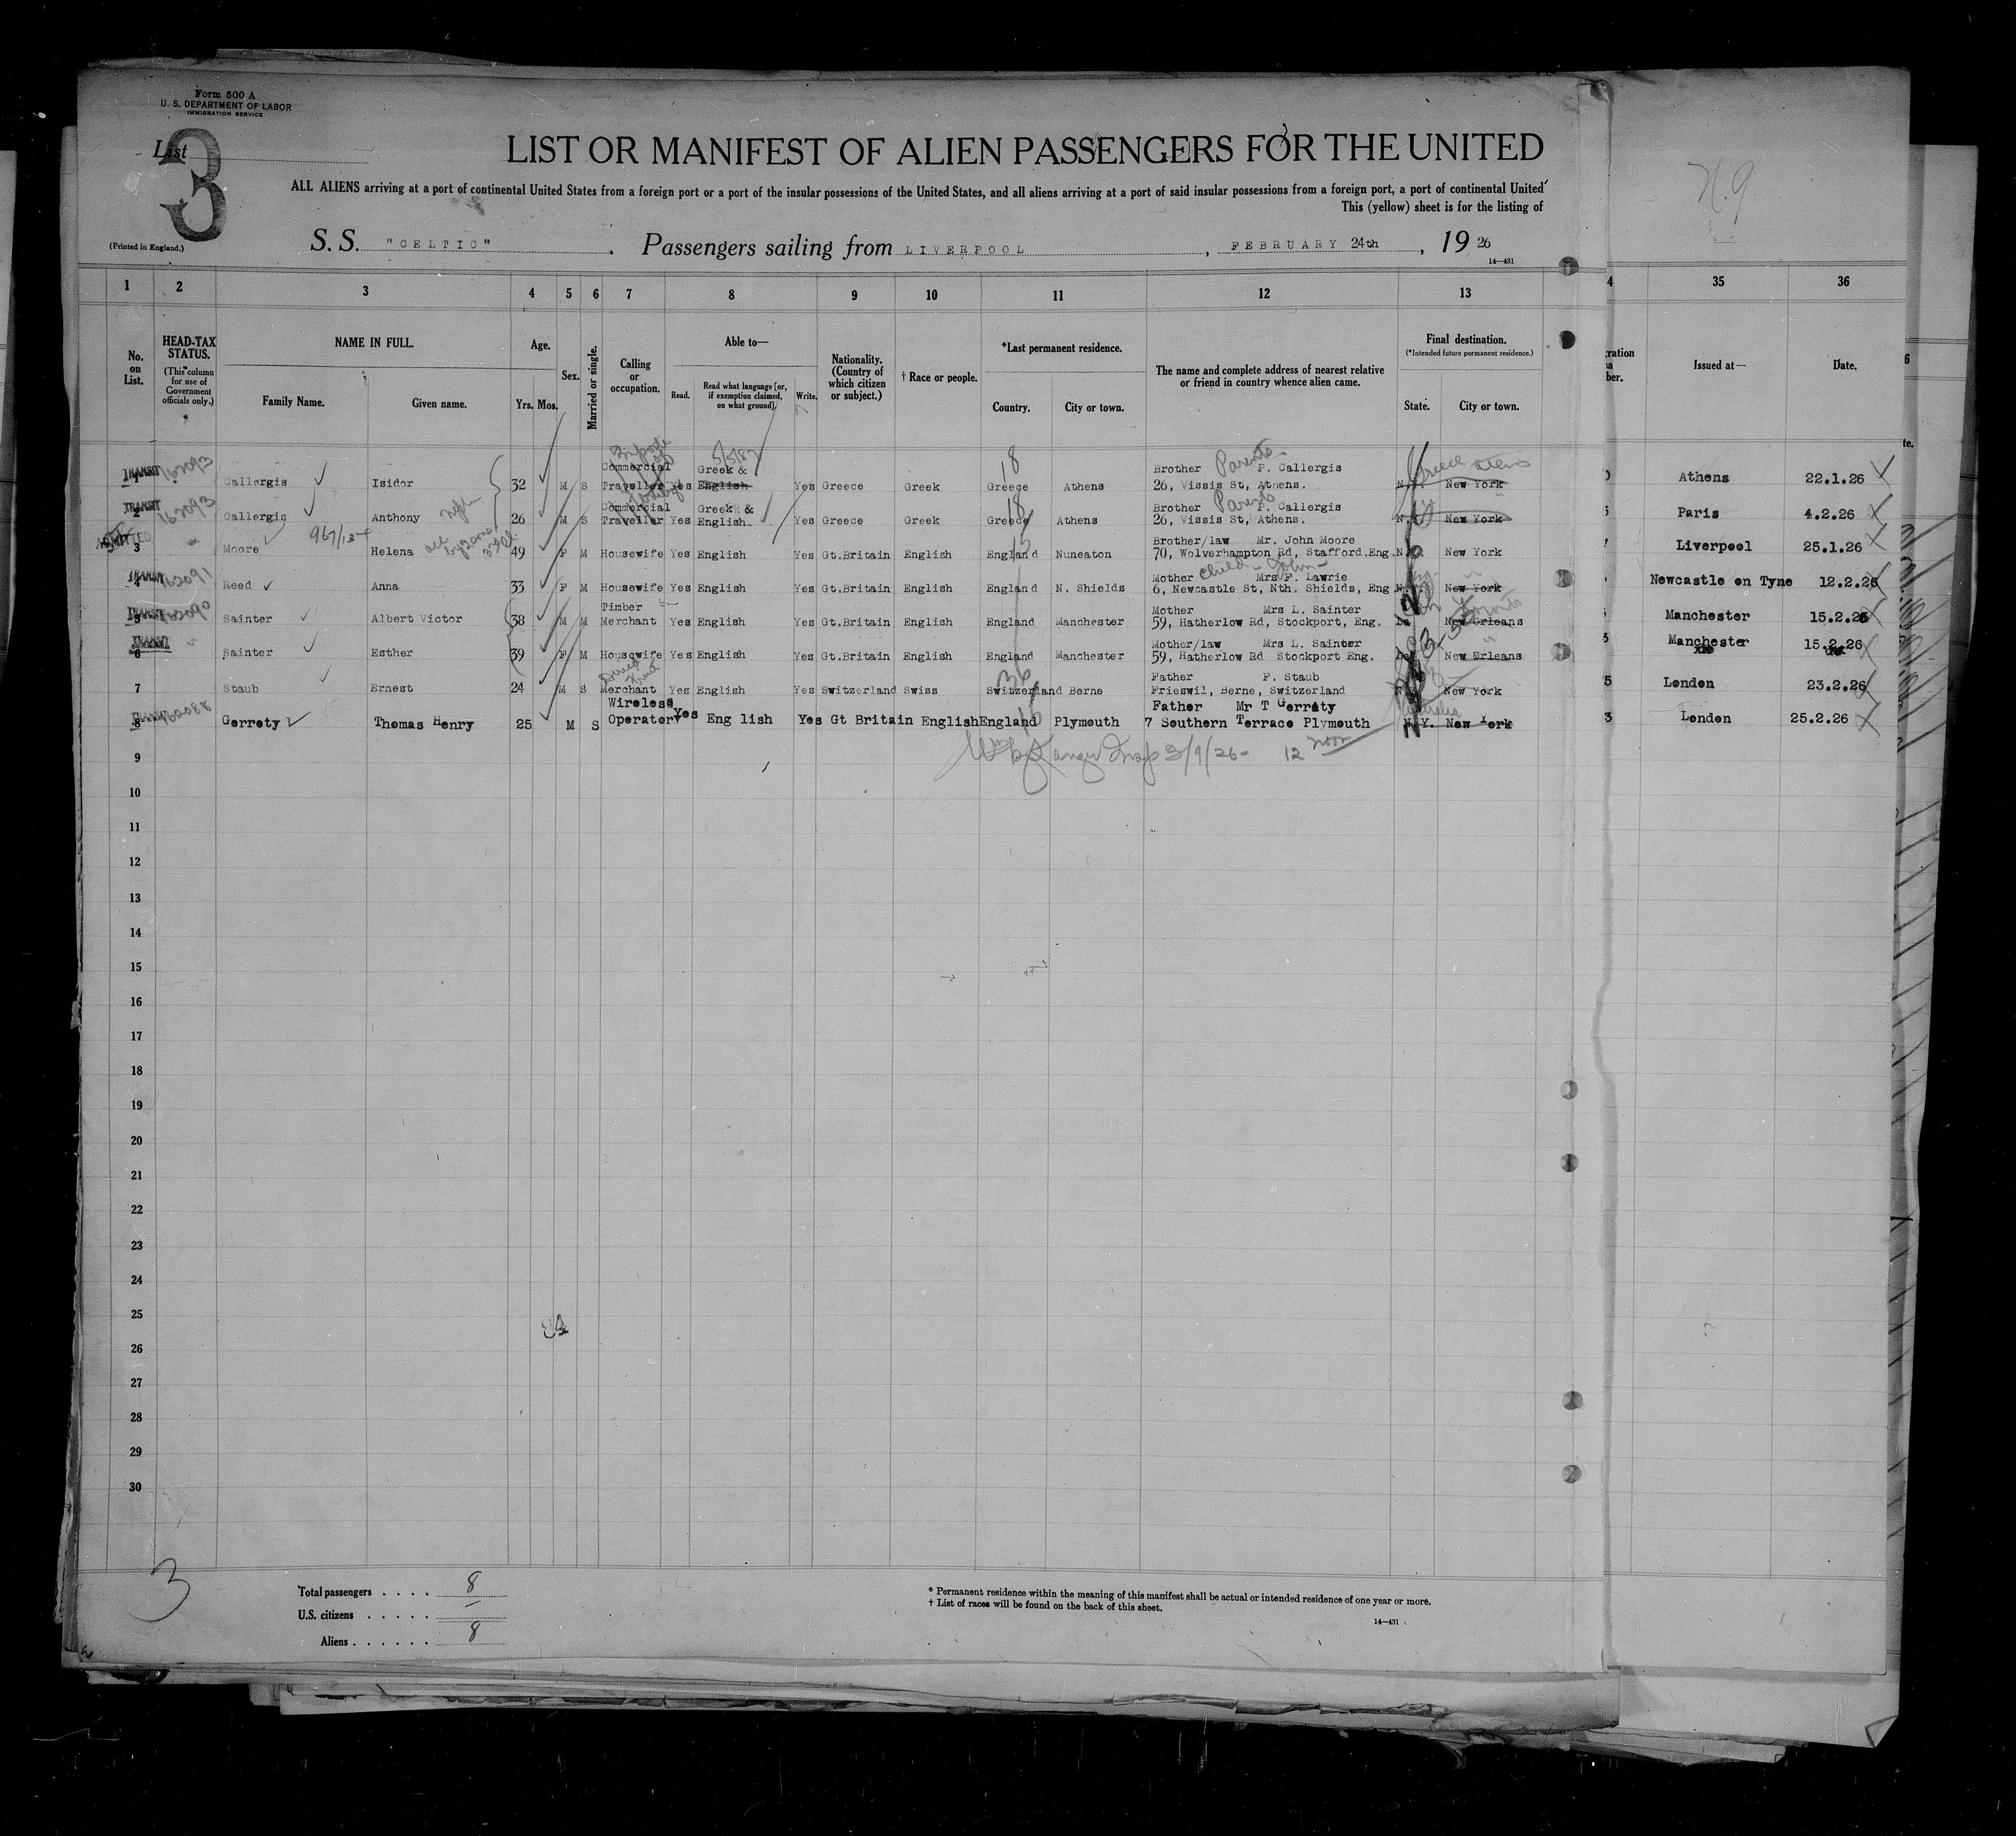 Form 500 A
U. S. DEPARTMENT OF LABOR
IMMIGRATION SERVICE
List 3
LIST OR MANIFEST OF ALIEN PASSENGERS FOR THE UNITED
ALL ALIENS arriving at a port of continental United States from a foreign port or a port of the insular possessions of the United States, and all aliens arriving at a port of said insular possessions from a foreign port, a port of continental United
This (yellow) sheet is for the listing of
(Printed in England.)
S. S. "CELTIC" . Passengers sailing from LIVERPOOL , FEBRUARY 24th , 19 26
14—431
1 2 3 4 5 6 7 8 9 10 11 12 13 4 35 36
No. on List.
HEAD-TAX STATUS.
(This column for use of Government officials only.)
NAME IN FULL.
Family Name. Given name.
Age.
Yrs. Mos.
Sex.
Married or single.
Calling or occupation.
Able to—
Read. Read what language [or, if exemption claimed, on what ground]. Write.
Nationality. (Country of which citizen or subject.)
† Race or people.
*Last permanent residence.
Country. City or town.
The name and complete address of nearest relative or friend in country whence alien came.
Final destination.
(*Intended future permanent residence.)
State. City or town.
ration
ber.
Issued at—
Date.
TRANSIT 162093 Parents
1 Callergis Isidor 32 M S Commercial Traveller Yes Greek & English Yes Greece Greek Greece Athens Brother P. Callergis 26, Vissis St, Athens. New York Athens 22.1.26
TRANSIT 162093 Parents
2 Callergis Anthony 26 M S Commercial Traveller Yes Greek & English Yes Greece Greek Greece Athens Brother P. Callergis 26, Vissis St, Athens. N.Y. New York Paris 4.2.26
ADMITTED
3 Moore Helena 49 F M Housewife Yes English Yes Gt.Britain English England Nuneaton Brother/law Mr. John Moore 70, Wolverhampton Rd, Stafford.Eng. New York Liverpool 25.1.26
TRANSIT 162091 Child - John -
4 Reed Anna 33 F M Housewife Yes English Yes Gt.Britain English England N. Shields Mother Mrs F. Lawrie 6, Newcastle St, Nth. Shields, Eng New York Newcastle on Tyne 12.2.26
TRANSIT 162090 Toronto
5 Sainter Albert Victor 38 M M Timber Merchant Yes English Yes Gt.Britain English England Manchester Mother Mrs L. Sainter 59, Hatherlow Rd, Stockport, Eng. La New Orleans Manchester 15.2.26
TRANSIT
6 Sainter Esther 39 F M Housewife Yes English Yes Gt.Britain English England Manchester Mother/law Mrs L. Sainter 59, Hatherlow Rd Stockport Eng. New Orleans Manchester 15.2.26
Dried Fruit
7 Staub Ernest 24 M S Merchant Yes English Yes Switzerland Swiss Switzerland Berne Father F. Staub Frieswil, Berne, Switzerland New York London 23.2.26
162088
8 Gerrety Thomas Henry 25 M S Wireless Operator Yes Eng lish Yes Gt Britain English England Plymouth Father Mr T Gerrity 7 Southern Terrace Plymouth N.Y. New York London 25.2.26
3/9/26 - 12 noon
9
10
11
12
13
14
15
16
17
18
19
20
21
22
23
24
25
26
27
28
29
30
3
Total passengers . . . . 8
U.S. citizens . . . . . —
Aliens . . . . . . 8
* Permanent residence within the meaning of this manifest shall be actual or intended residence of one year or more.
† List of races will be found on the back of this sheet.
14—431